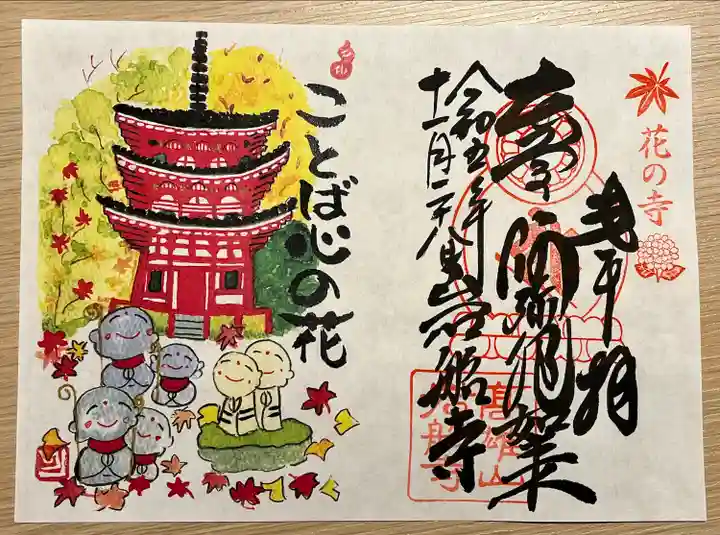 ことば心の花
花の寺
阿弥陀如来
令和五年
十一月二十八日
岩船寺
高雄山
岩船寺